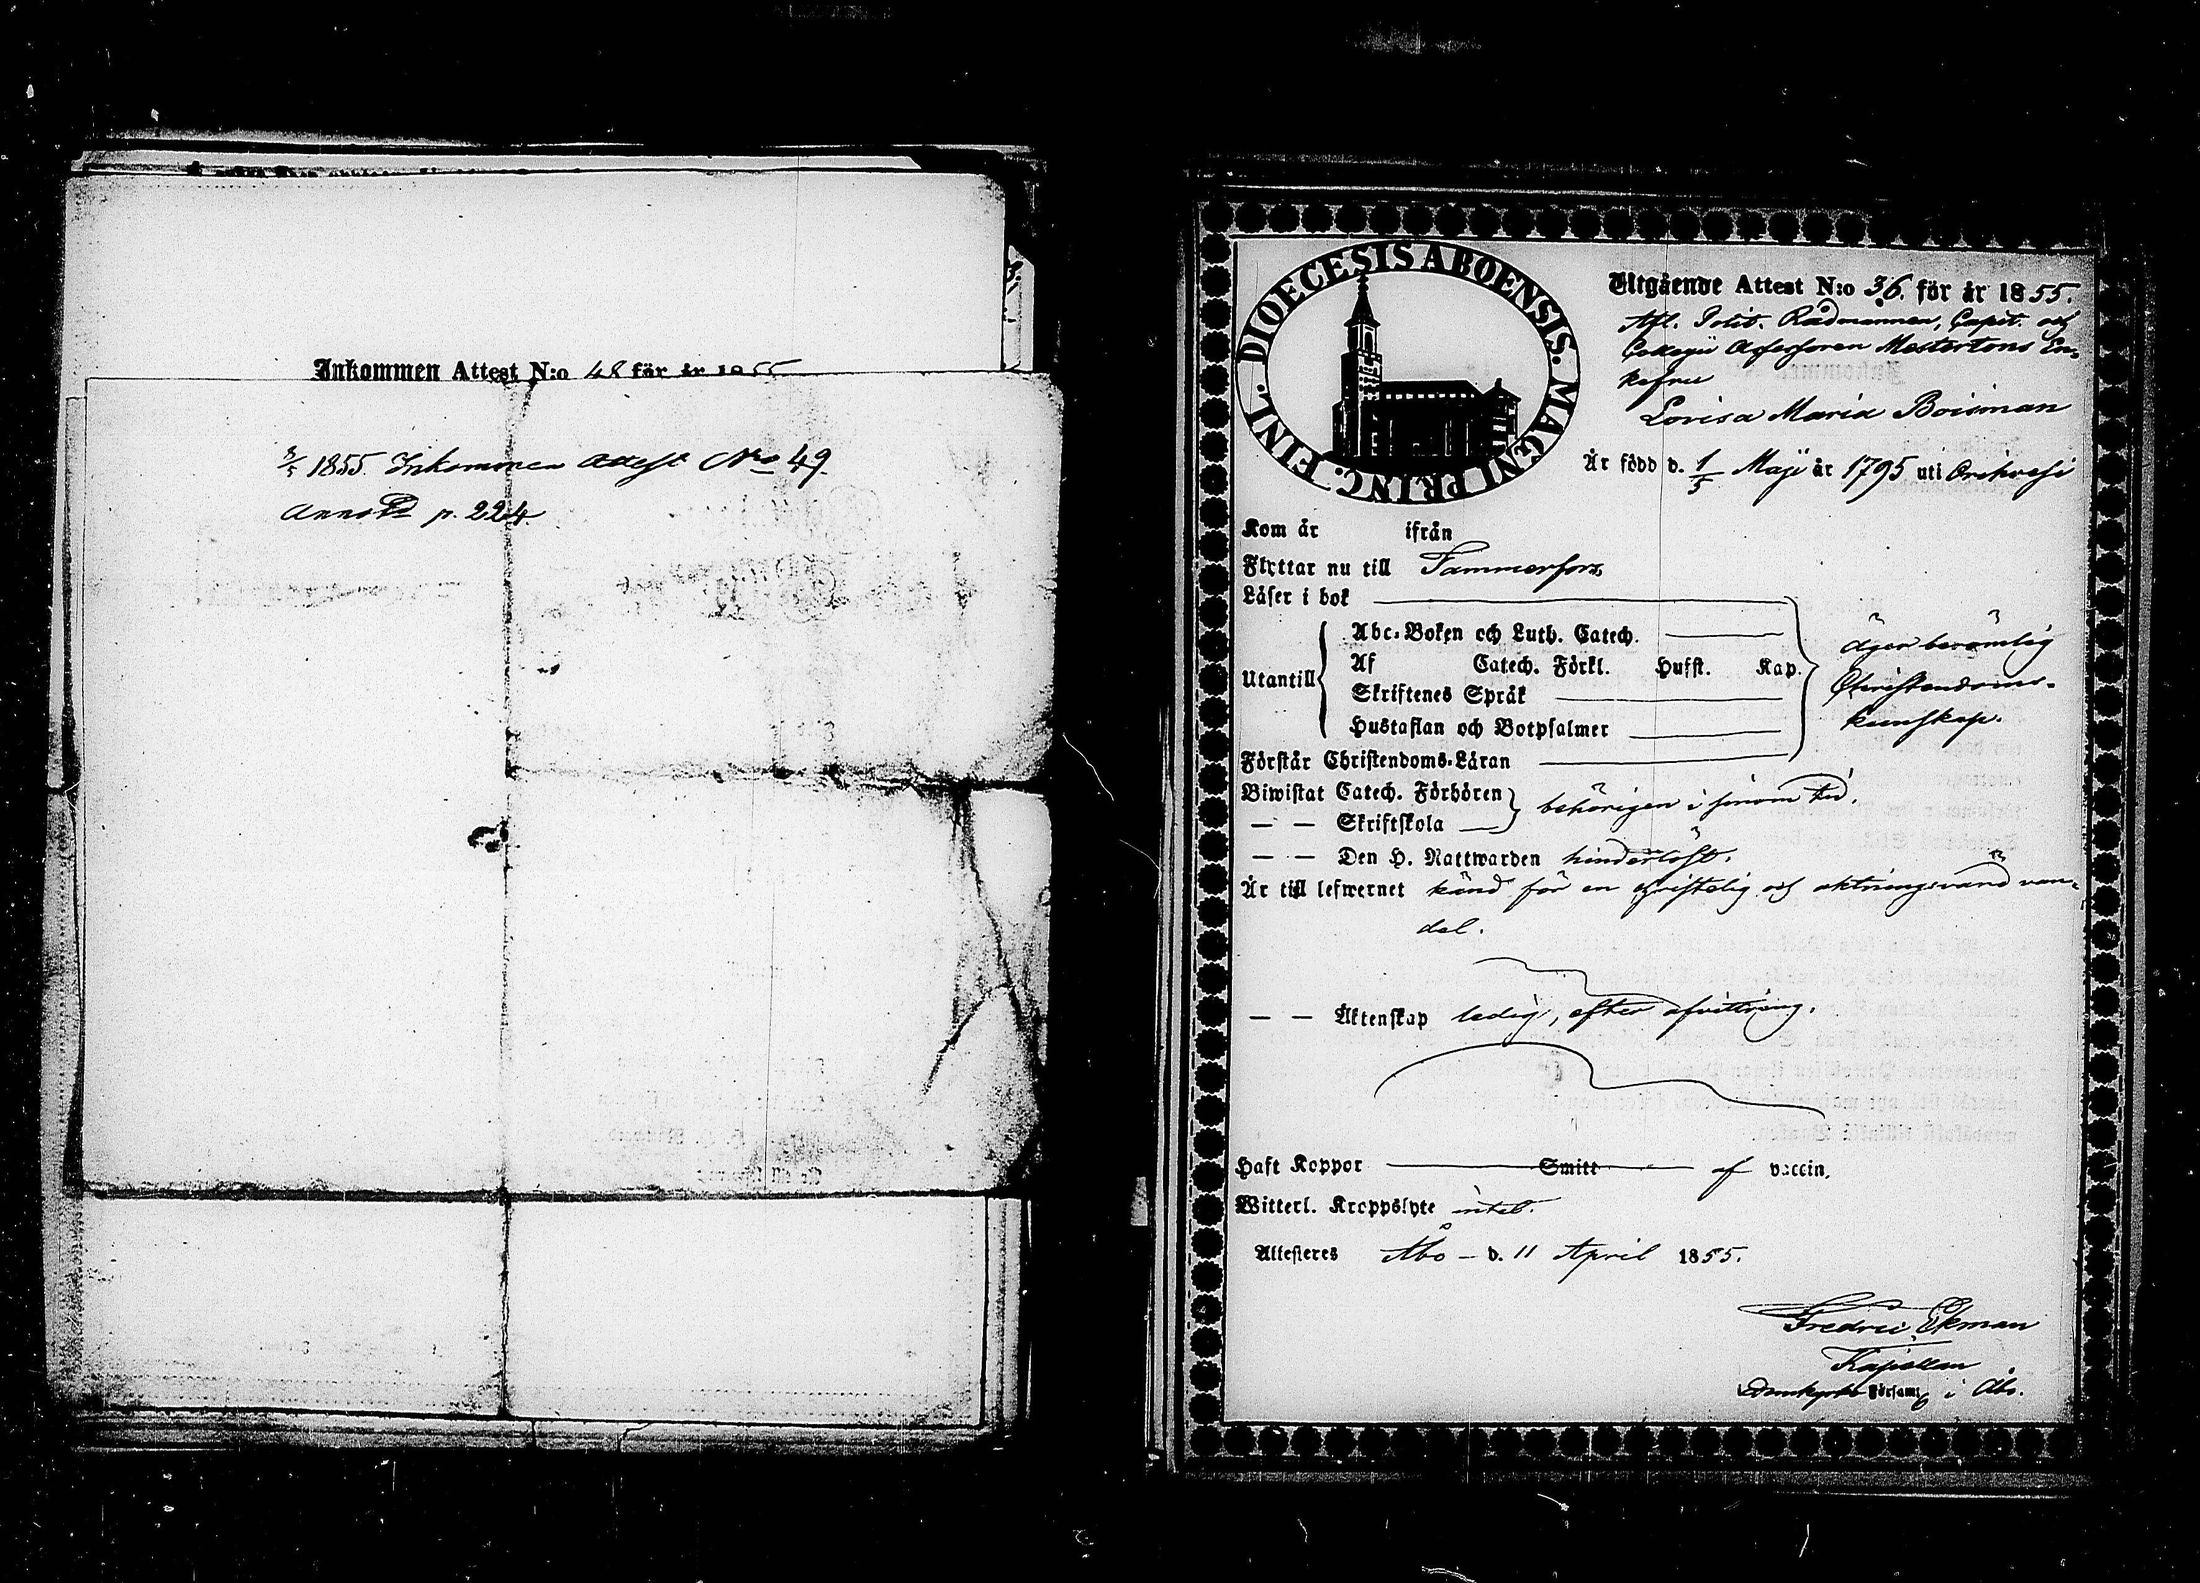 Inkommen Attest N:o 48 för år 1855
3/5 1855. Inkommen Attest No 49.
Annot. p. 224.
DIOECESIS ABOENSIS. MAGNI PRINC. FINL.
Utgående Attest N:o 36. för år 1855.
Afl. Polit. Rådmannen, Capit. och
Collegii Assessoren Mestertons En-
kefru
Lovisa Maria Boisman
Är född d. 1/5 Maji år 1795 uti Orihvesi
Kom år ifrån
Flyttar nu till Tammerfors
Läser i bok
Abc-Boken och Luth. Catech.
Utantill Af Catech. Förkl. Hufst. Kap.
Skriftenes Språk
Hustaflan och Botpsalmer
äger berömlig
Christendoms-
kunskap.
Förstår Christendoms-Läran
Biwistat Catech. Förhören
— — Skriftskola
behörigen i sinom tid.
— — Den H. Nattwarden hinderlöst.
Är till lefwernet känd för en christelig och aktningsvärd van-
del.
— — Äktenskap ledig, efter afvittring.
Haft Koppor Smitt af vaccin.
Witterl. Kroppslyte intet.
Attesteres Åbo — d. 11 April 1855.
Fredric Ekman
Kapellan
Domkyrko Församl i Åbo.